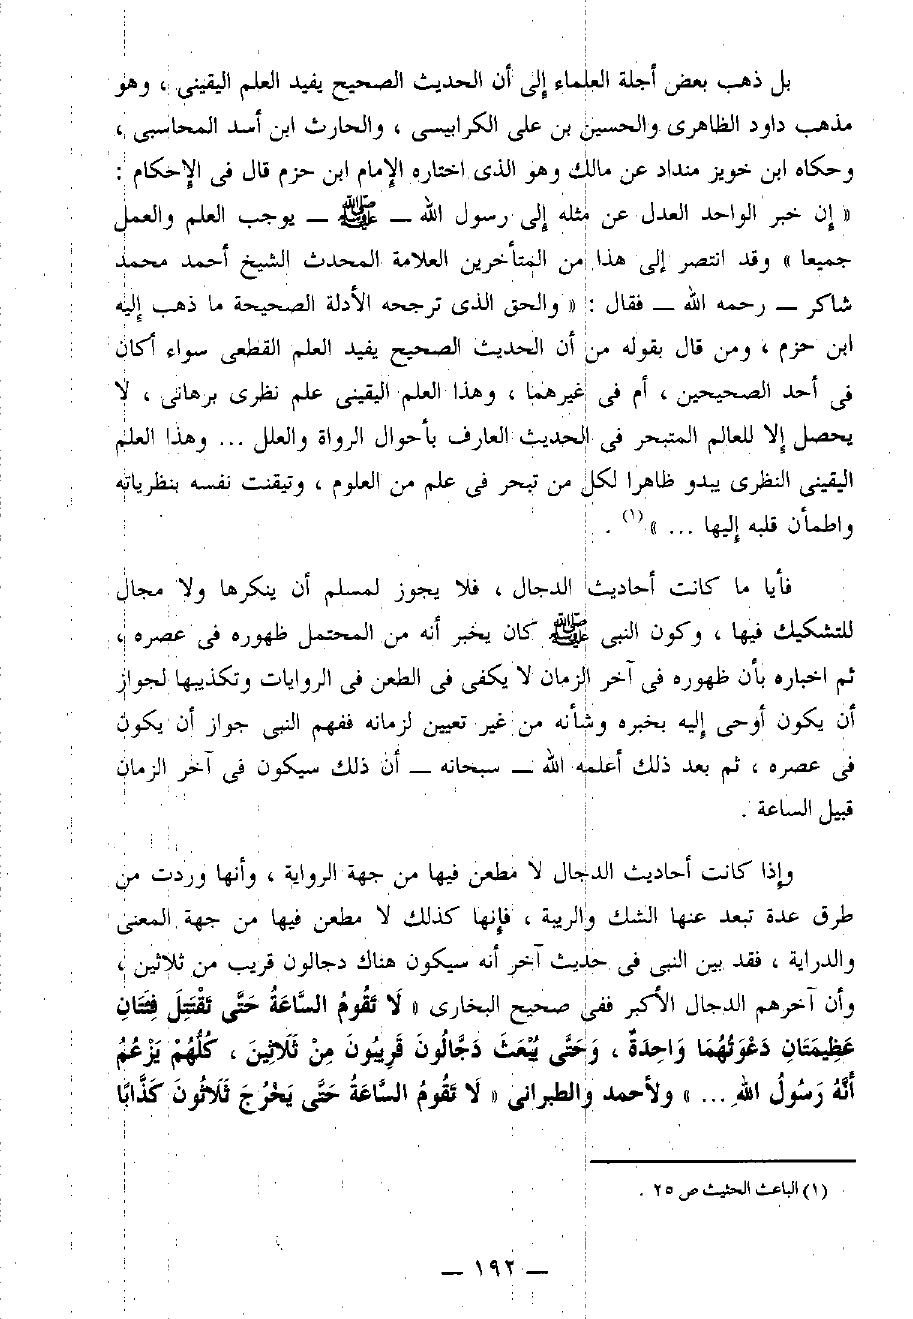 بل ذهب بعض أجلة العلماء إلى أن الحديث الصحيح يفيد العلم اليقينى ، وهو
مذهب داود الظاهرى والحسين بن على الكرابيسى ، والحارث ابن أسد المحاسبى ،
وحكاه ابن خويز منداد عن مالك وهو الذى اختاره الإمام ابن حزم قال فى الإحكام :
« إن خبر الواحد العدل عن مثله إلى رسول الله ــ ﷺ ــ يوجب العلم والعمل
جميعا » وقد انتصر إلى هذا من المتأخرين العلامة المحدث الشيخ أحمد محمد
شاكر ــ رحمه الله ــ فقال : « والحق الذى ترجحه الأدلة الصحيحة ما ذهب إليه
ابن حزم ، ومن قال بقوله من أن الحديث الصحيح يفيد العلم القطعى سواء أكان
فى أحد الصحيحين ، أم فى غيرهما ، وهذا العلم اليقينى علم نظرى برهانى ، لا
يحصل إلا للعالم المتبحر فى الحديث العارف بأحوال الرواة والعلل ... وهذا العلم
اليقينى النظرى يبدو ظاهرا لكل من تبحر فى علم من العلوم ، وتيقنت نفسه بنظرياته
واطمأن قلبه إليها ... » (١) .
فأيا ما كانت أحاديث الدجال ، فلا يجوز لمسلم أن ينكرها ولا مجال
للتشكيك فيها ، وكون النبى ﷺ كان يخبر أنه من المحتمل ظهوره فى عصره ،
ثم اخباره بأن ظهوره فى آخر الزمان لا يكفى فى الطعن فى الروايات وتكذيبها لجواز
أن يكون أوحى إليه بخبره وشأنه من غير تعيين لزمانه ففهم النبى جواز أن يكون
فى عصره ، ثم بعد ذلك أعلمه الله ــ سبحانه ــ أن ذلك سيكون فى آخر الزمان
قبيل الساعة .
وإذا كانت أحاديث الدجال لا مطعن فيها من جهة الرواية ، وأنها وردت من
طرق عدة تبعد عنها الشك والريبة ، فإنها كذلك لا مطعن فيها من جهة المعنى
والدراية ، فقد بين النبى فى حديث آخر أنه سيكون هناك دجالون قريب من ثلاثين ،
وأن آخرهم الدجال الأكبر ففى صحيح البخارى « لَا تَقُومُ السَّاعَةُ حَتَّى تَقْتَتِلَ فِئَتَانِ
عَظِيمَتَانِ دَعْوَتُهُمَا وَاحِدَةٌ ، وَحَتَّى يُبْعَثَ دَجَّالُونَ قَرِيبُونَ مِنْ ثَلَاثِينَ ، كُلُّهُمْ يَزْعُمُ
أَنَّهُ رَسُولُ اللهِ ... » ولأحمد والطبرانى « لَا تَقُومُ السَّاعَةُ حَتَّى يَخْرُجَ ثَلَاثُونَ كَذَّابًا
(١) الباعث الحثيث ص ٢٥ .
ــ ١٩٢ ــ